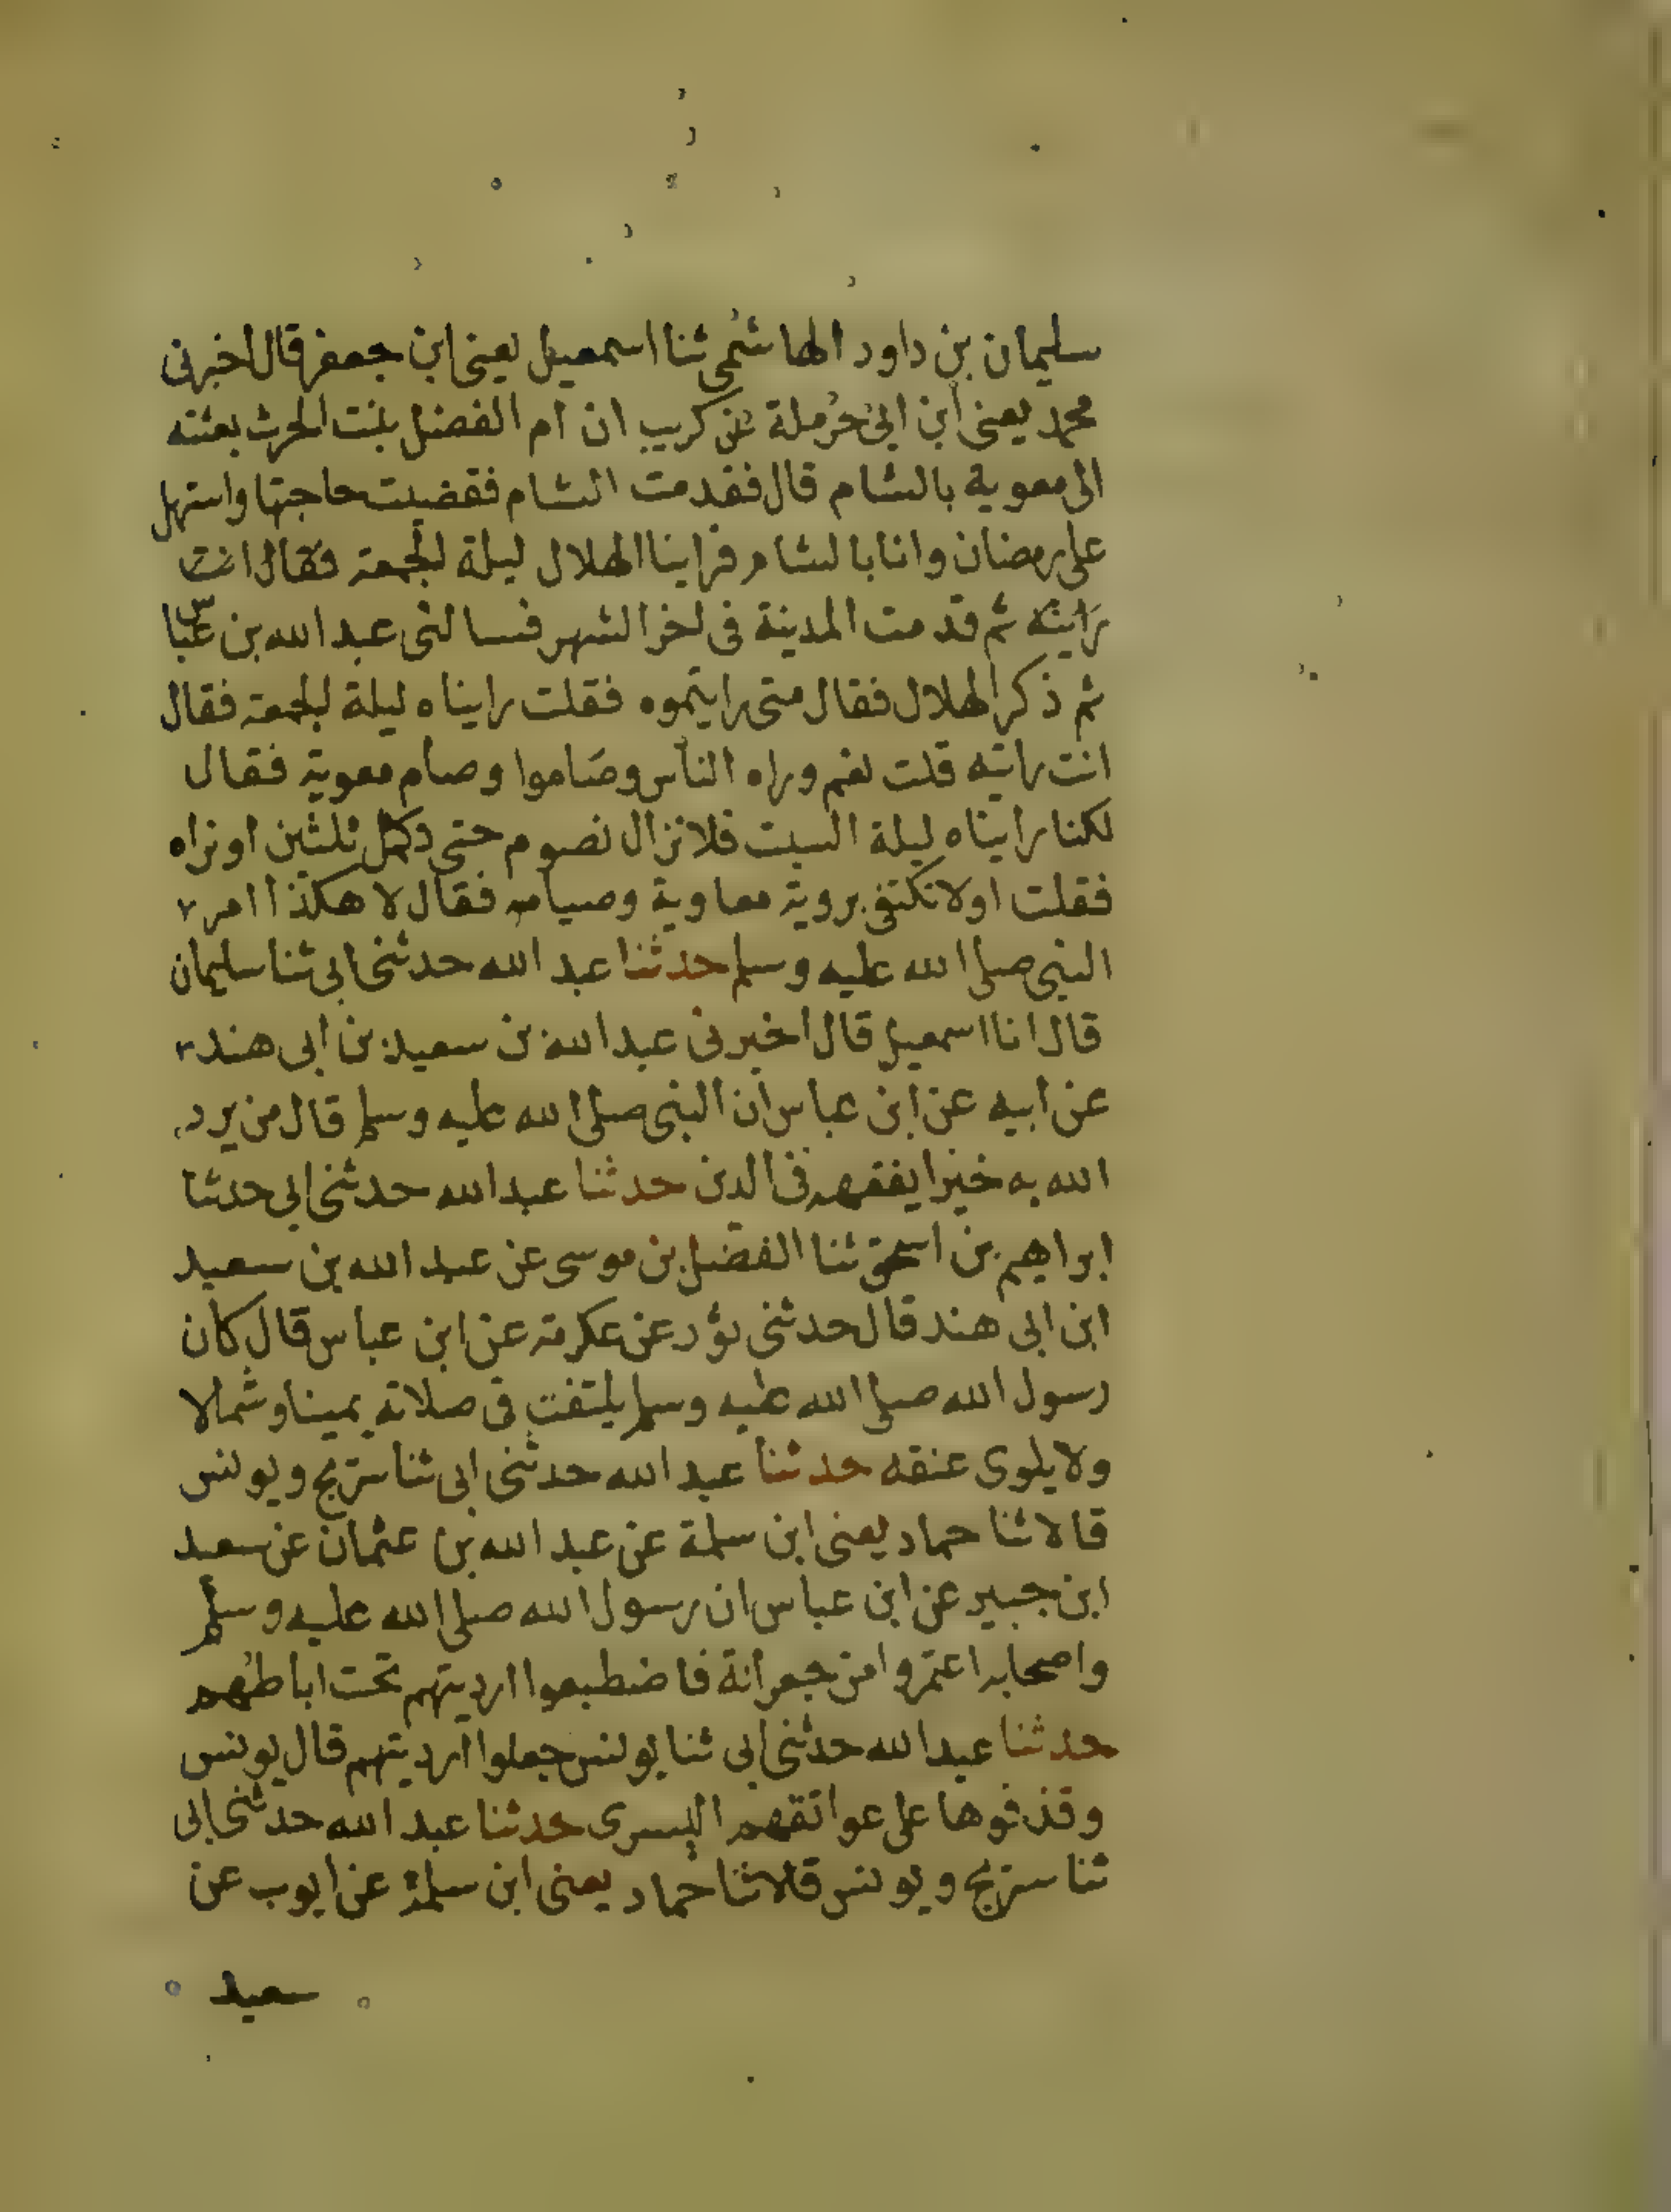 سليمان بن داود الهاشمي ثنا اسمعيل يعنى ابن جعفر قال اخبرنى
محمد يعنى ابن ابى حرملة عن كريب ان ام الفضل بنت الحرث بعثته
الى معوية بالشام قال فقدمت الشام فقضيت حاجتها واستهل
على رمضان وانا بالشام فراينا الهلال ليلة الجمعة فقال انت
رايته ثم قدمت المدينة فى اخر الشهر فسالنى عبد الله بن عباس
ثم ذكر الهلال فقال متى رايتموه فقلت رايناه ليلة الجمعة فقال
انت راته قلت نعم وراه الناس وصاموا وصام معوية فقال
لكنا رايناه ليلة السبت فلا نزال نصوم حتى نكمل ثلثين او نراه
فقلت اولا نكتفى بروية معاوية وصيامه فقال لا هكذا امر
النبى صلى الله عليه وسلم حدثنا عبد الله حدثنى ابى ثنا سليمان
قال انا اسمعيل قال اخبرنى عبد الله بن سعيد بن ابى هند
عن ابيه عن ابن عباس ان النبى صلى الله عليه وسلم قال من يرد
الله به خيرا يفقهه فى الدين حدثنا عبد الله حدثنى ابى حدثنا
ابراهيم بن اسحق ثنا الفضل بن موسى عن عبد الله بن سعيد
ابن ابى هند قال حدثنى ثور عن عكرمة عن ابن عباس قال كان
رسول الله صلى الله عليه وسلم يلتفت فى صلاته يمينا وشمالا
ولا يلوى عنقه حدثنا عبد الله حدثنى ابى ثنا سريج ويونس
قالا ثنا حماد يعنى ابن سلمة عن عبد الله بن عثمان عن سعيد
ابن جبير عن ابن عباس ان رسول الله صلى الله عليه وسلم
واصحابه اعتمروا من جعرانة فاضطبعوا ارديتهم تحت اباطهم
حدثنا عبد الله حدثنى ابى ثنا يونس جعلوا ارديتهم قال يونس
وقذفوها على عواتقهم اليسرى حدثنا عبد الله حدثنى ابى
ثنا سريج ويونس قالا ثنا حماد يعنى ابن سلمة عن ايوب عن
سعيد